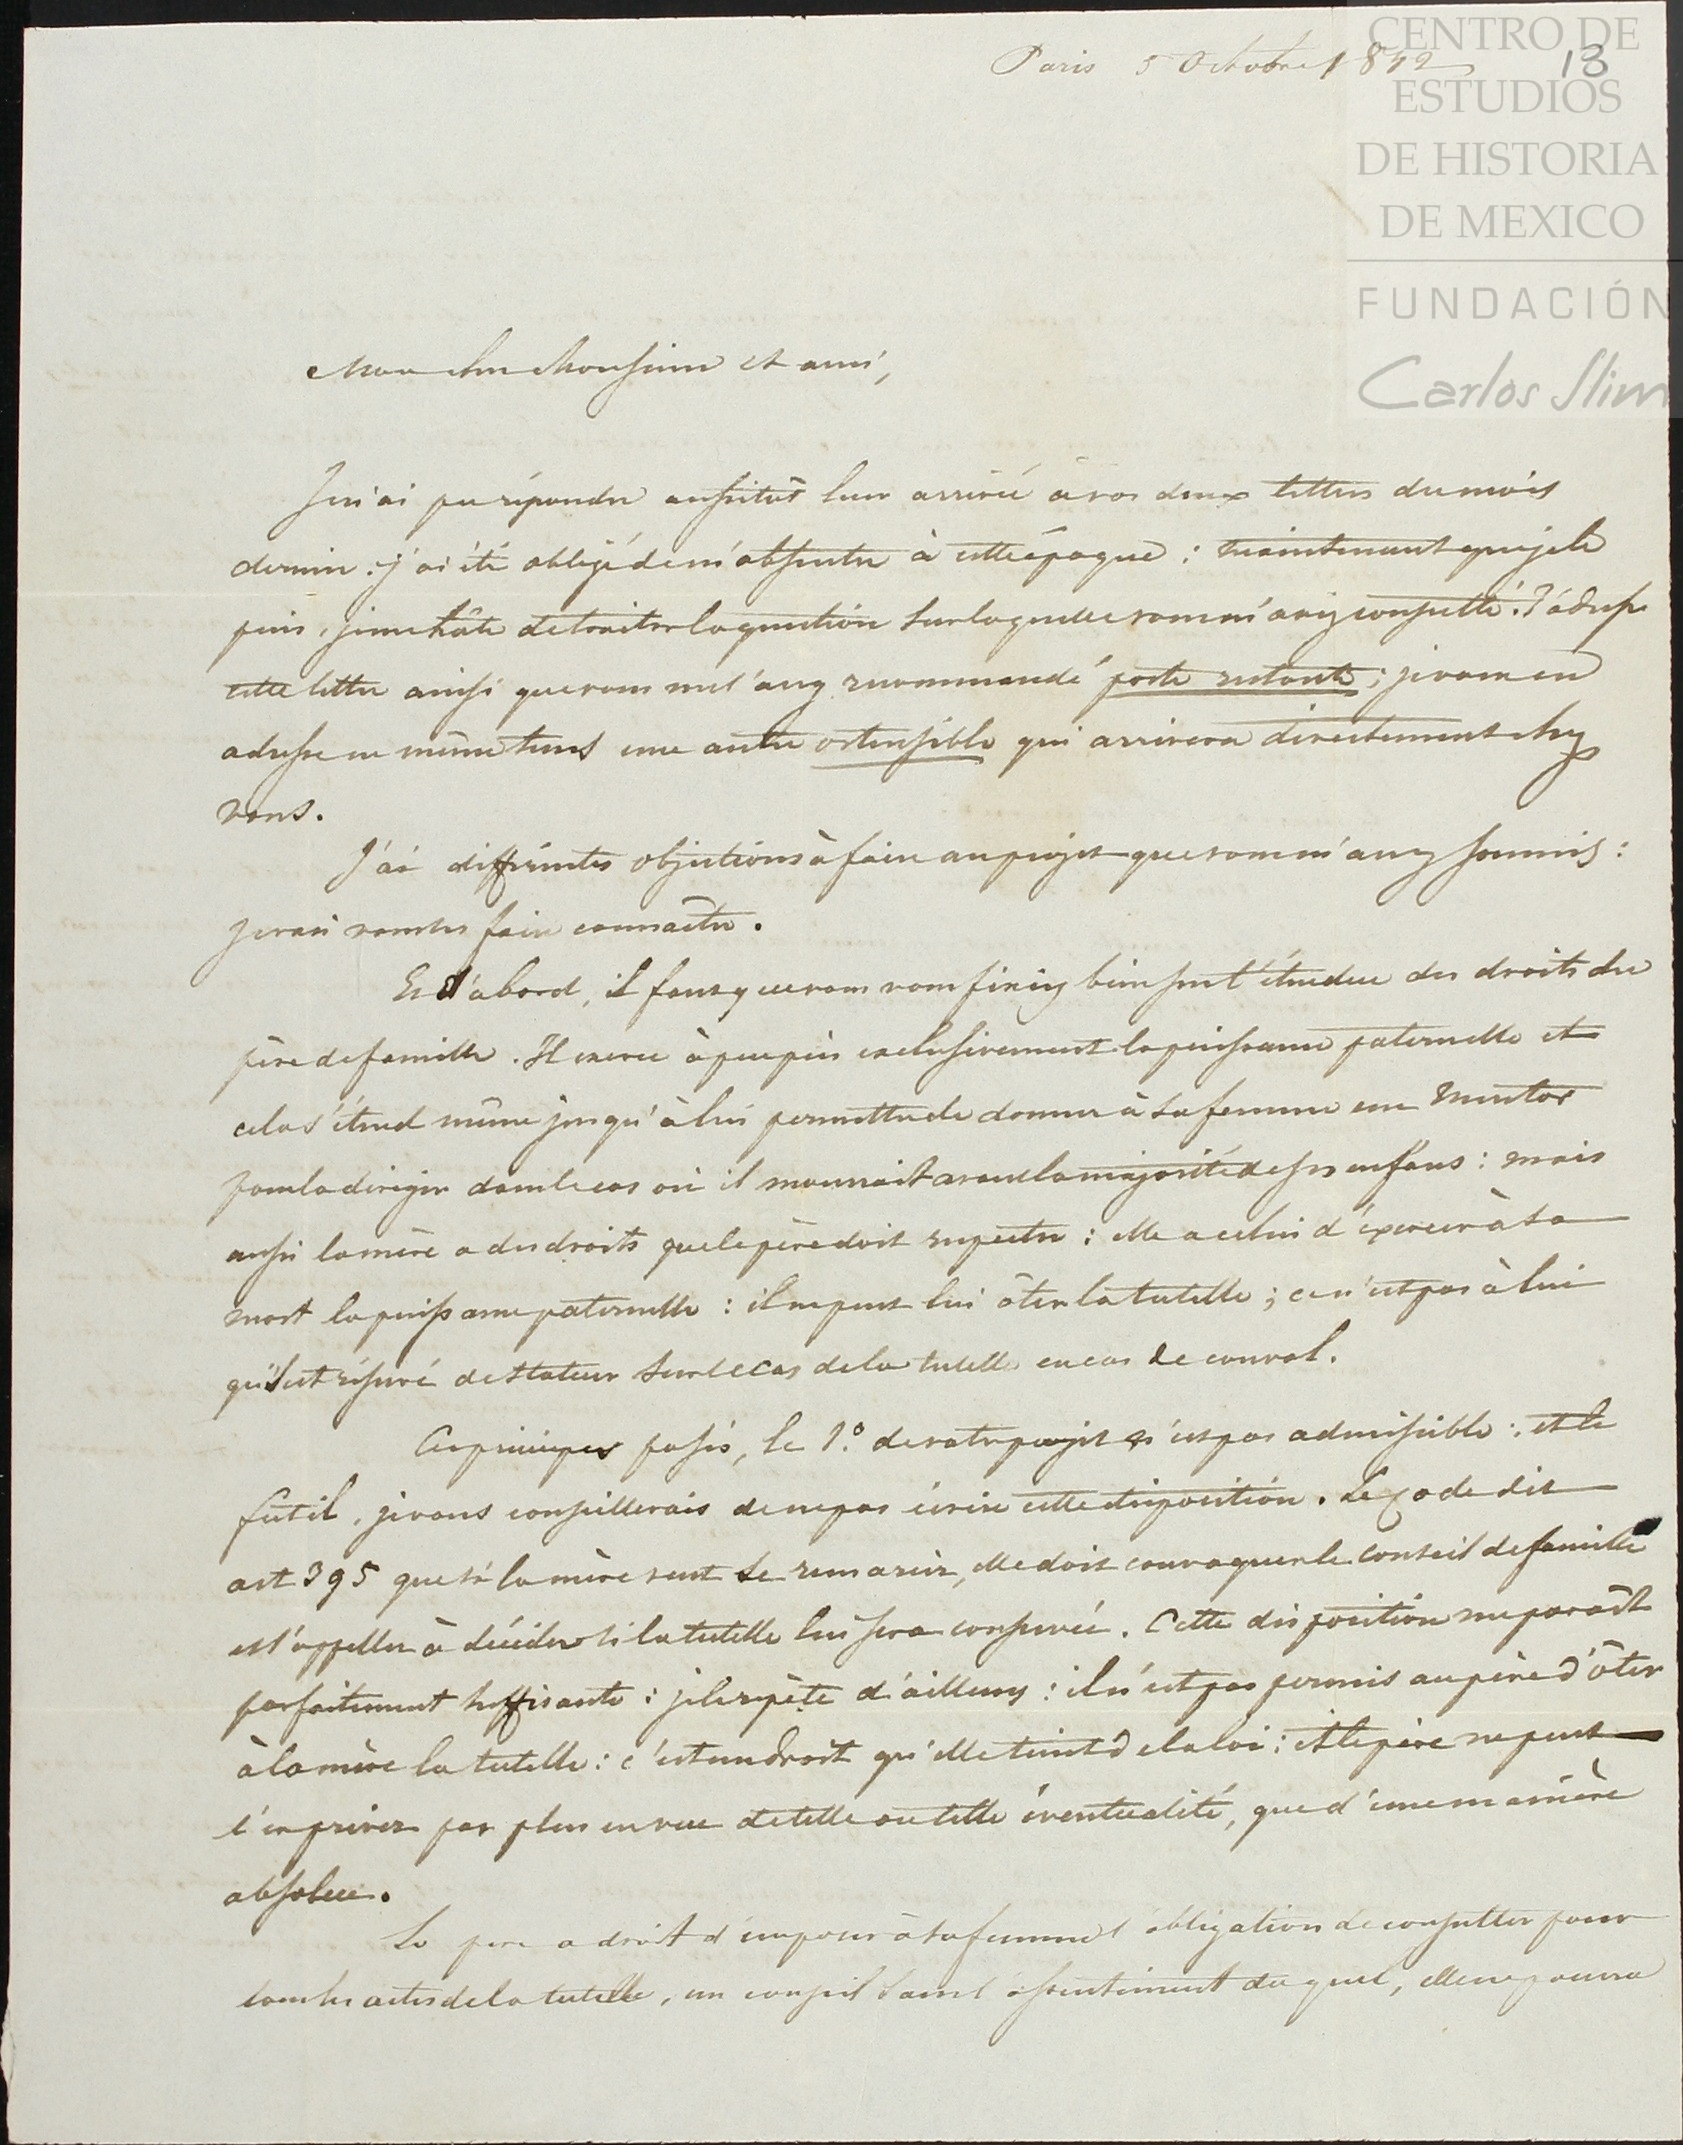 Paris 5 Octobre 1842
13
CENTRO DE
ESTUDIOS
DE HISTORIA
DE MEXICO
FUNDACIÓN
Carlos Slim
Mon cher Monsieur et ami,
Je n'ai pu répondre aussitôt leur arrivée à vos deux lettres du mois
dernier. j'ai été obligé de m'absenter à cette époque : maintenant que je le
puis, je me hâte de traiter la question sur laquelle vous m'avez consulté. J'adresse
cette lettre ainsi que vous me l'avez recommandé poste restante ; je vous en
adresse en même tems une autre ostensible qui arrivera directement chez
vous.
J'ai différentes objections à faire au projet que vous m'avez soumis :
je vais vous les faire connaître.
Et d'abord, il faut que vous vous fixiez bien sur l'étendue des droits du
père de famille. Il exerce à peu près exclusivement la puissance paternelle et
cela s'étend même jusqu'à lui permettre de donner à sa femme un Mentor
pour la diriger dans le cas où il mourrait avant la majorité de ses enfans : mais
aussi la mère a des droits que le père doit respecter : elle a celui d'exercer à sa
mort la puissance paternelle : il ne peut lui ôter la tutelle ; ce n'est pas à lui
qu'il est réservé de statuer sur le cas de la tutelle en cas de convol.
Ces principes posés, le 1.º de votre projet n'est pas admissible : et le
fut il, je vous conseillerais de ne pas écrire cette disposition. Le Code dit
art 395 que si la mère veut se remarier, elle doit convoquer le conseil de famille
et l'appeller à décider si la tutelle lui sera conservée. Cette disposition me paraît
parfaitement suffisante : je le répète d'ailleurs : il n'est pas permis au père d'ôter
à la mère la tutelle : c'est un droit qu'elle tient de la loi : et le père ne peut
l'en priver pas plus en vue de telle ou telle éventualité, que d'une manière
absolue.
Le père a droit d'imposer à sa femme l'obligation de consulter pour
tous les actes de la tutelle, un conseil sans l'assentiment duquel, elle ne pourra